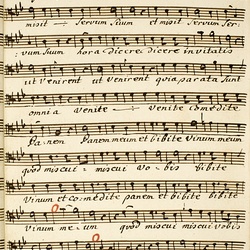 misit servum suum et misit servum ser:
vum suum hora dicere dicere invitatis
ut venirent ut venirent quia parata sunt
omnia venite venite comedite
Panem Panem meum et bibite vinum meum
quod miscui miscui vobis bibite
Vinum et comedite panem et bibite vinum
vinum meum quod miscui miscui vobis